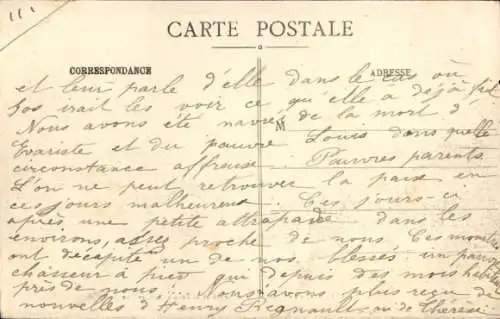 111
CARTE POSTALE
CORRESPONDANCE
ADRESSE
et leur parle d'elle dans le cas où
irait les voir ce qu'elle a déjà fait
Nous avons été navrés de la mort d'
M
Evariste et du pauvre Louis dans quelle
circonstance affreuse. Pauvres parents
L'on ne peut retrouver la paix en
ces jours malheureux. Ces jours-ci
après une petite attrapade dans les
environs, assez proche de nous. Ces
ont décapité un de nos blessés un pauvre
chasseur à pied qui depuis des mois habite
près de nous! Nous n'avons plus reçu de
nouvelles d'Henry Regnault ni de Thérèse